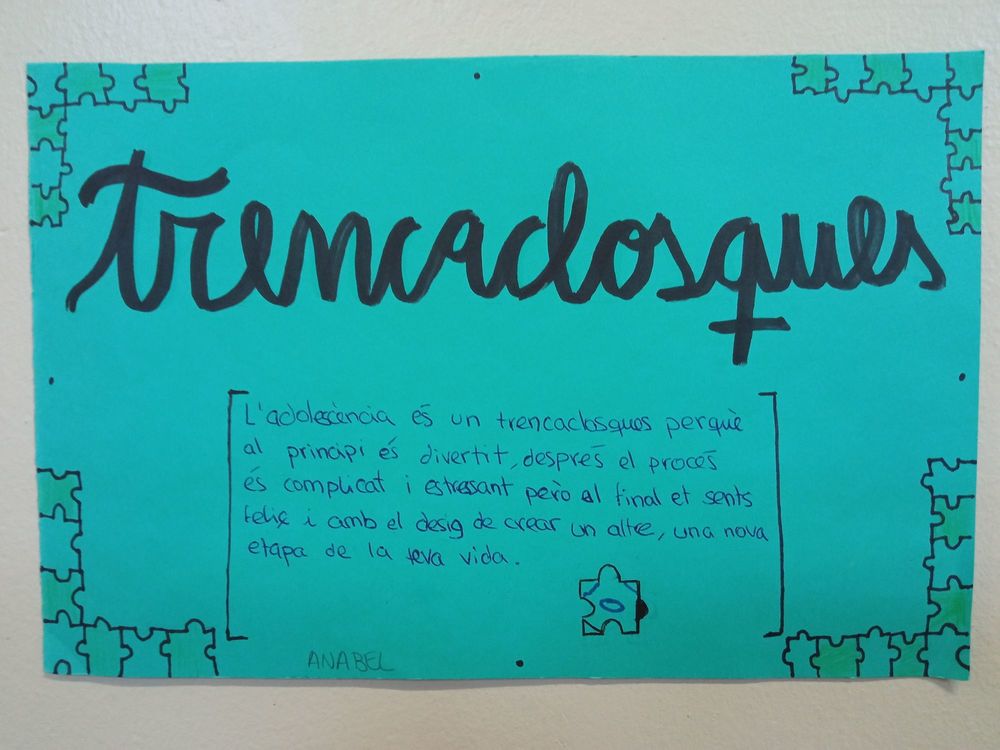 trencaclosques
L'adolescència és un trencaclosques perquè
al principi és divertit, després el procés
és complicat i estressant però al final et sents
feliç i amb el desig de crear un altre, una nova
etapa de la teva vida.
ANABEL